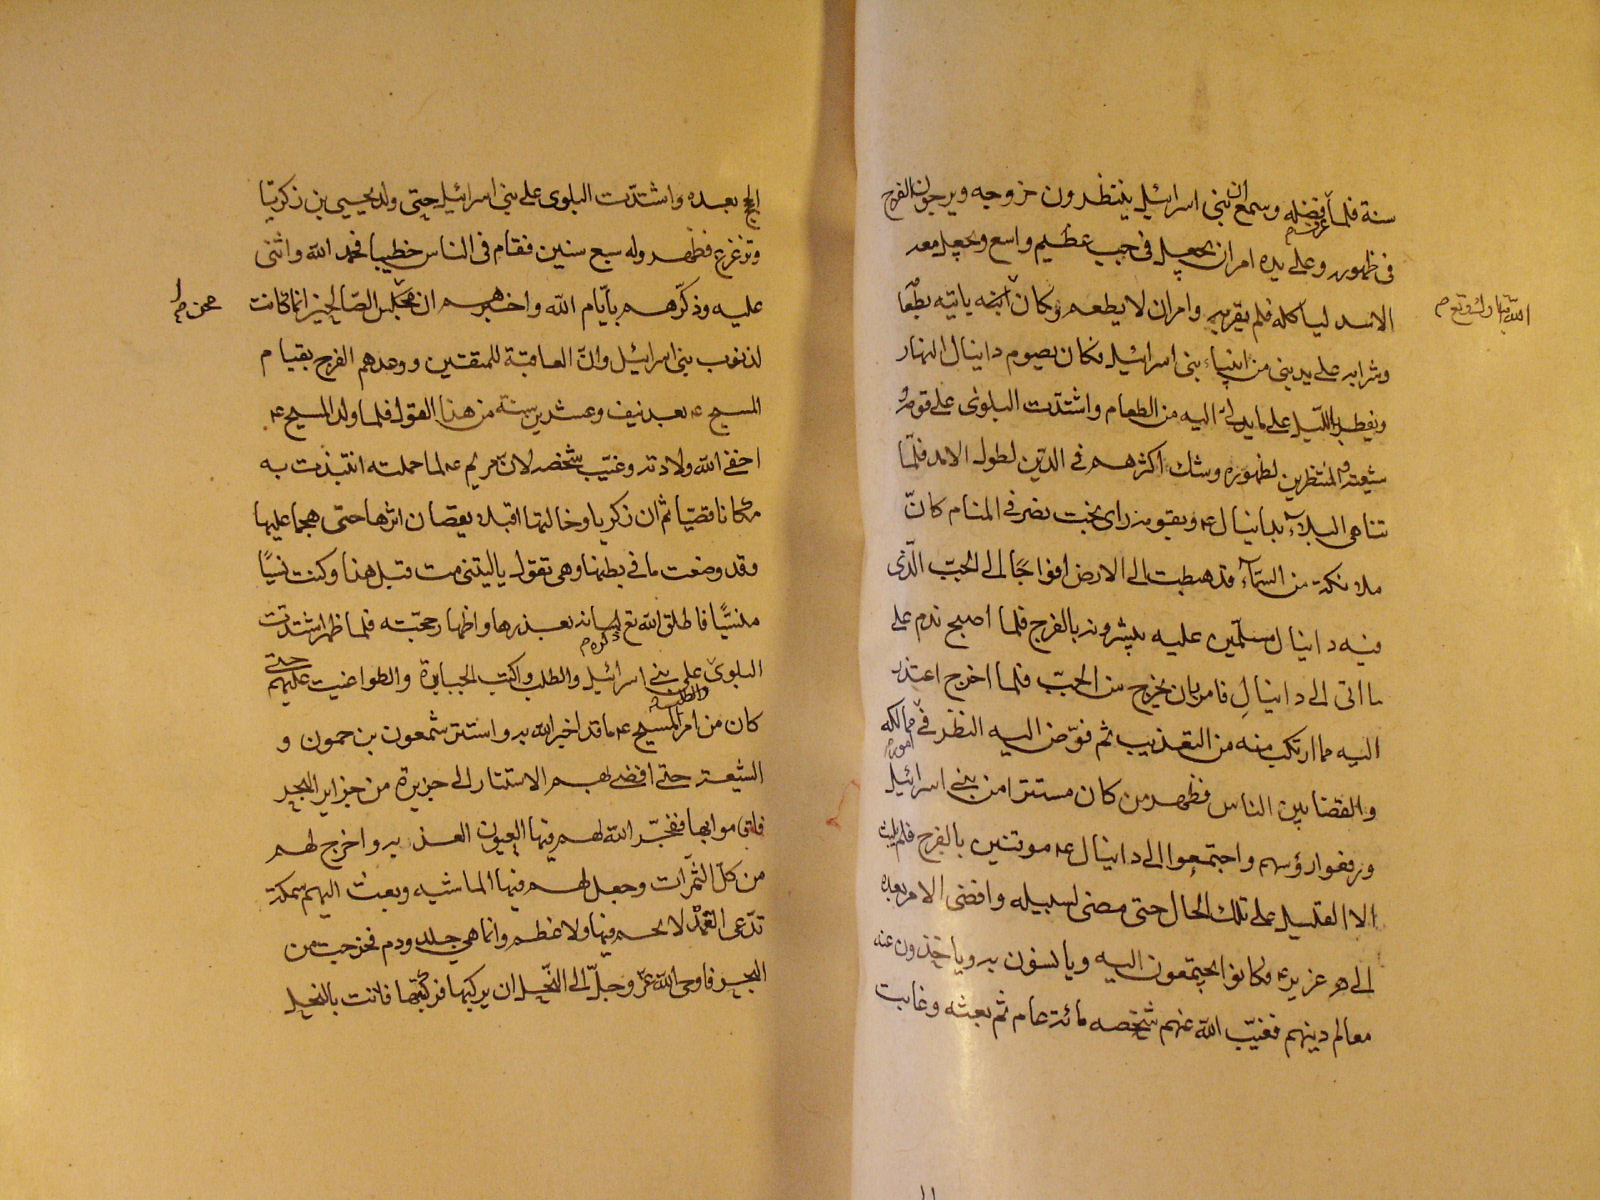 سنة فلما عرف فضله وسمع ان بني اسرائيل ينتظرون خروجه ويرجون الفرج
في ظهوره وعلى يده امر ان يجعل في جب عظيم واسع ويجعل معه
الاسد لياكله فلم يقربه وامر ان لا يطعم وكان ياتيه بطعامه
الله تبارك وتع
وشرابه على يد نبي من انبياء بني اسرائيل فكان يصوم دانيال النهار
ويفطر بالليل على ما يدلى اليه من الطعام واشتدت البلوى على قومه و
شيعته المنتظرين لظهوره وشك اكثرهم في الدين لطول الامد فلما
تناهى البلاء بدانيال ع وبقومه راى بخت نصر في المنام كانّ
ملائكة من السماء قد هبطت الى الارض افواجا الى الجب الذي
فيه دانيال مسلمين عليه يبشرونه بالفرج فلما اصبح ندم على
ما اتى الى دانيال فامر بان يخرج من الجب فلما اخرج اعتذر
اليه مما ارتكب منه من التعذيب ثم فوّض اليه النظر في امور ممالكه
والقضا بين الناس فظهر من كان مستترا من بني اسرائيل
ورفعوا رؤسهم واجتمعوا الى دانيال ع موقنين بالفرج فلم يلبث
الا القليل على تلك الحال حتى مضى لسبيله وافضى الامر بعده
الى عزير ع وكانوا يجتمعون اليه ويانسون به وياخذون عنه
معالم دينهم فغيّب الله عنهم شخصه مائة عام ثم بعثه وغابت
الحج بعده واشتدّت البلوى على بني اسرائيل حتى ولد يحيى بن زكريا
وترعرع فظهر وله سبع سنين فقام في الناس خطيبا فحمد الله واثنى
عليه وذكّرهم بأيّام الله واخبرهم ان محن الصالحين انما كانت
محن
لذنوب بني اسرائيل وانّ العاقبة للمتقين ووعدهم الفرج بقيام
المسيح ع بعد نيف وعشرين سنة من هذا القول فلما ولد المسيح ع
اخفى الله ولادته وغيّب شخصه لانّ مريم ع لما حملته انتبذت به
مكانا قصيّا ثم ان زكريا وخالتها اقبلا يقصان اثرها حتى هجما عليها
وقد وضعت ما في بطنها وهي تقول يا ليتني مت قبل هذا وكنت نسيًا
منسيًّا فاطلق الله تع لسانه بعذرها واظهار حجّته فلما ظهر اشتدت
البلوى على بني اسرائيل والطلب واكبّ الجبابرة والطواغيت عليهم حتى
كان من امر المسيح ع ما قد اخبر الله به واستتر شمعون بن حمون و
الشيعة حتى افضى بهم الاستتار الى جزيرة من جزاير البحر
فاقاموا بها ففجّر الله لهم فيها العيون العذبه واخرج لهم
من كلّ الثمرات وجعل لهم فيها الماشيه وبعث اليهم سمكة
تدعى القمد لا لحم فيها ولا عظم وانما هي جلد ودم فخرجت من
البحر فاوحى الله عزّ وجلّ الى النّحل ان يركبها فركبتها فاتت بالنحل